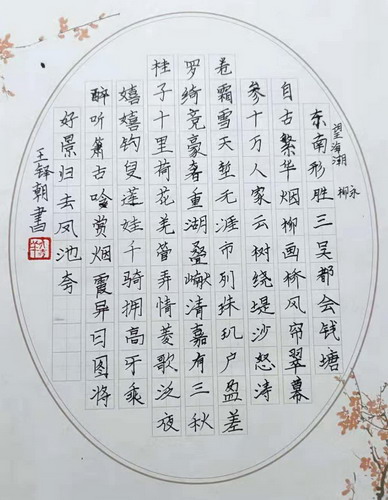 望海潮
柳永
东南形胜三吴都会钱塘
自古繁华烟柳画桥风帘翠幕
参十万人家云树绕堤沙怒涛
卷霜雪天堑无涯市列珠玑户盈
罗绮竞豪奢重湖叠巘清嘉有三秋
桂子十里荷花羌管弄情菱歌泛夜
嬉嬉钓叟莲娃千骑拥高牙乘
醉听箫古吟赏烟霞异日图将
好景归去凤池夸
差
王铎朝书